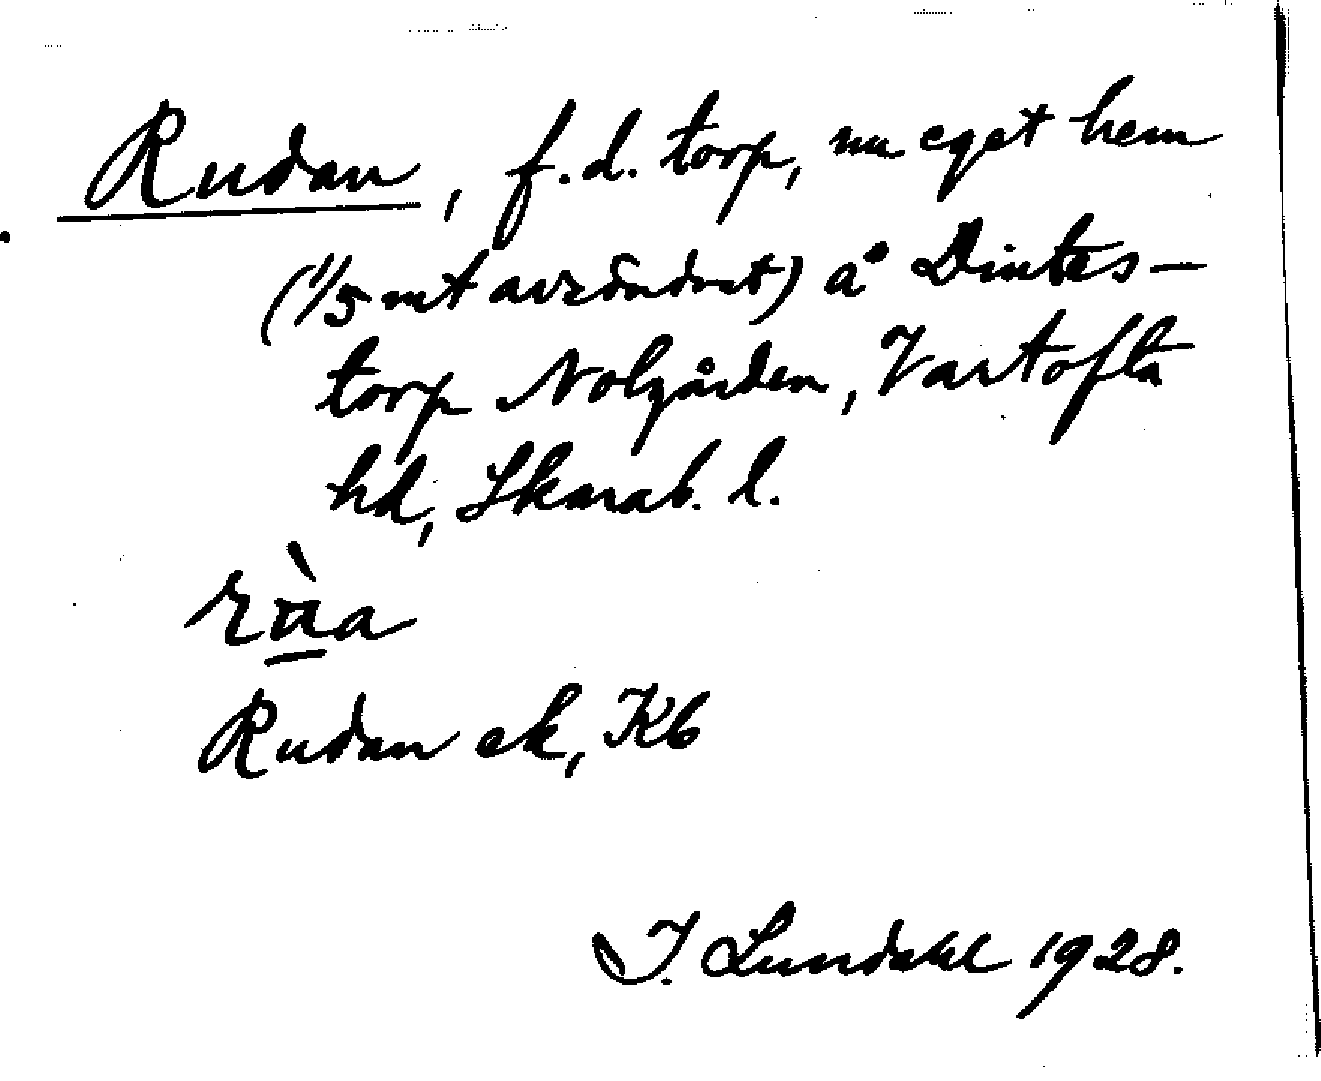 Rudan, f.d. torp, nu eget hem
(1/5 mt avsöndrat) å Dintes-
torp Nolgården, Vartofta
hd, Skarab. l.
Rudan ek, Kb
I. Lundahl 1928.